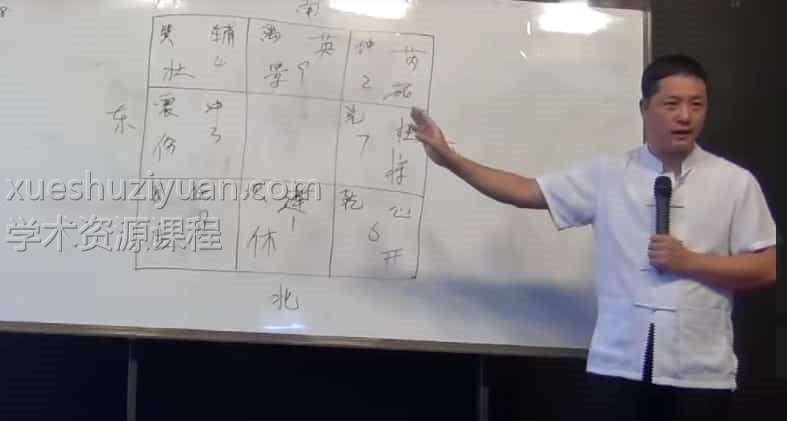 南
巽 辅 离 英 坤 芮
杜 4 景 9 2 死
东 震 冲 兑 柱
伤 3 7 惊
xueshuziyuan.com
学术资源课程
乾 心
休 1 6 开
北